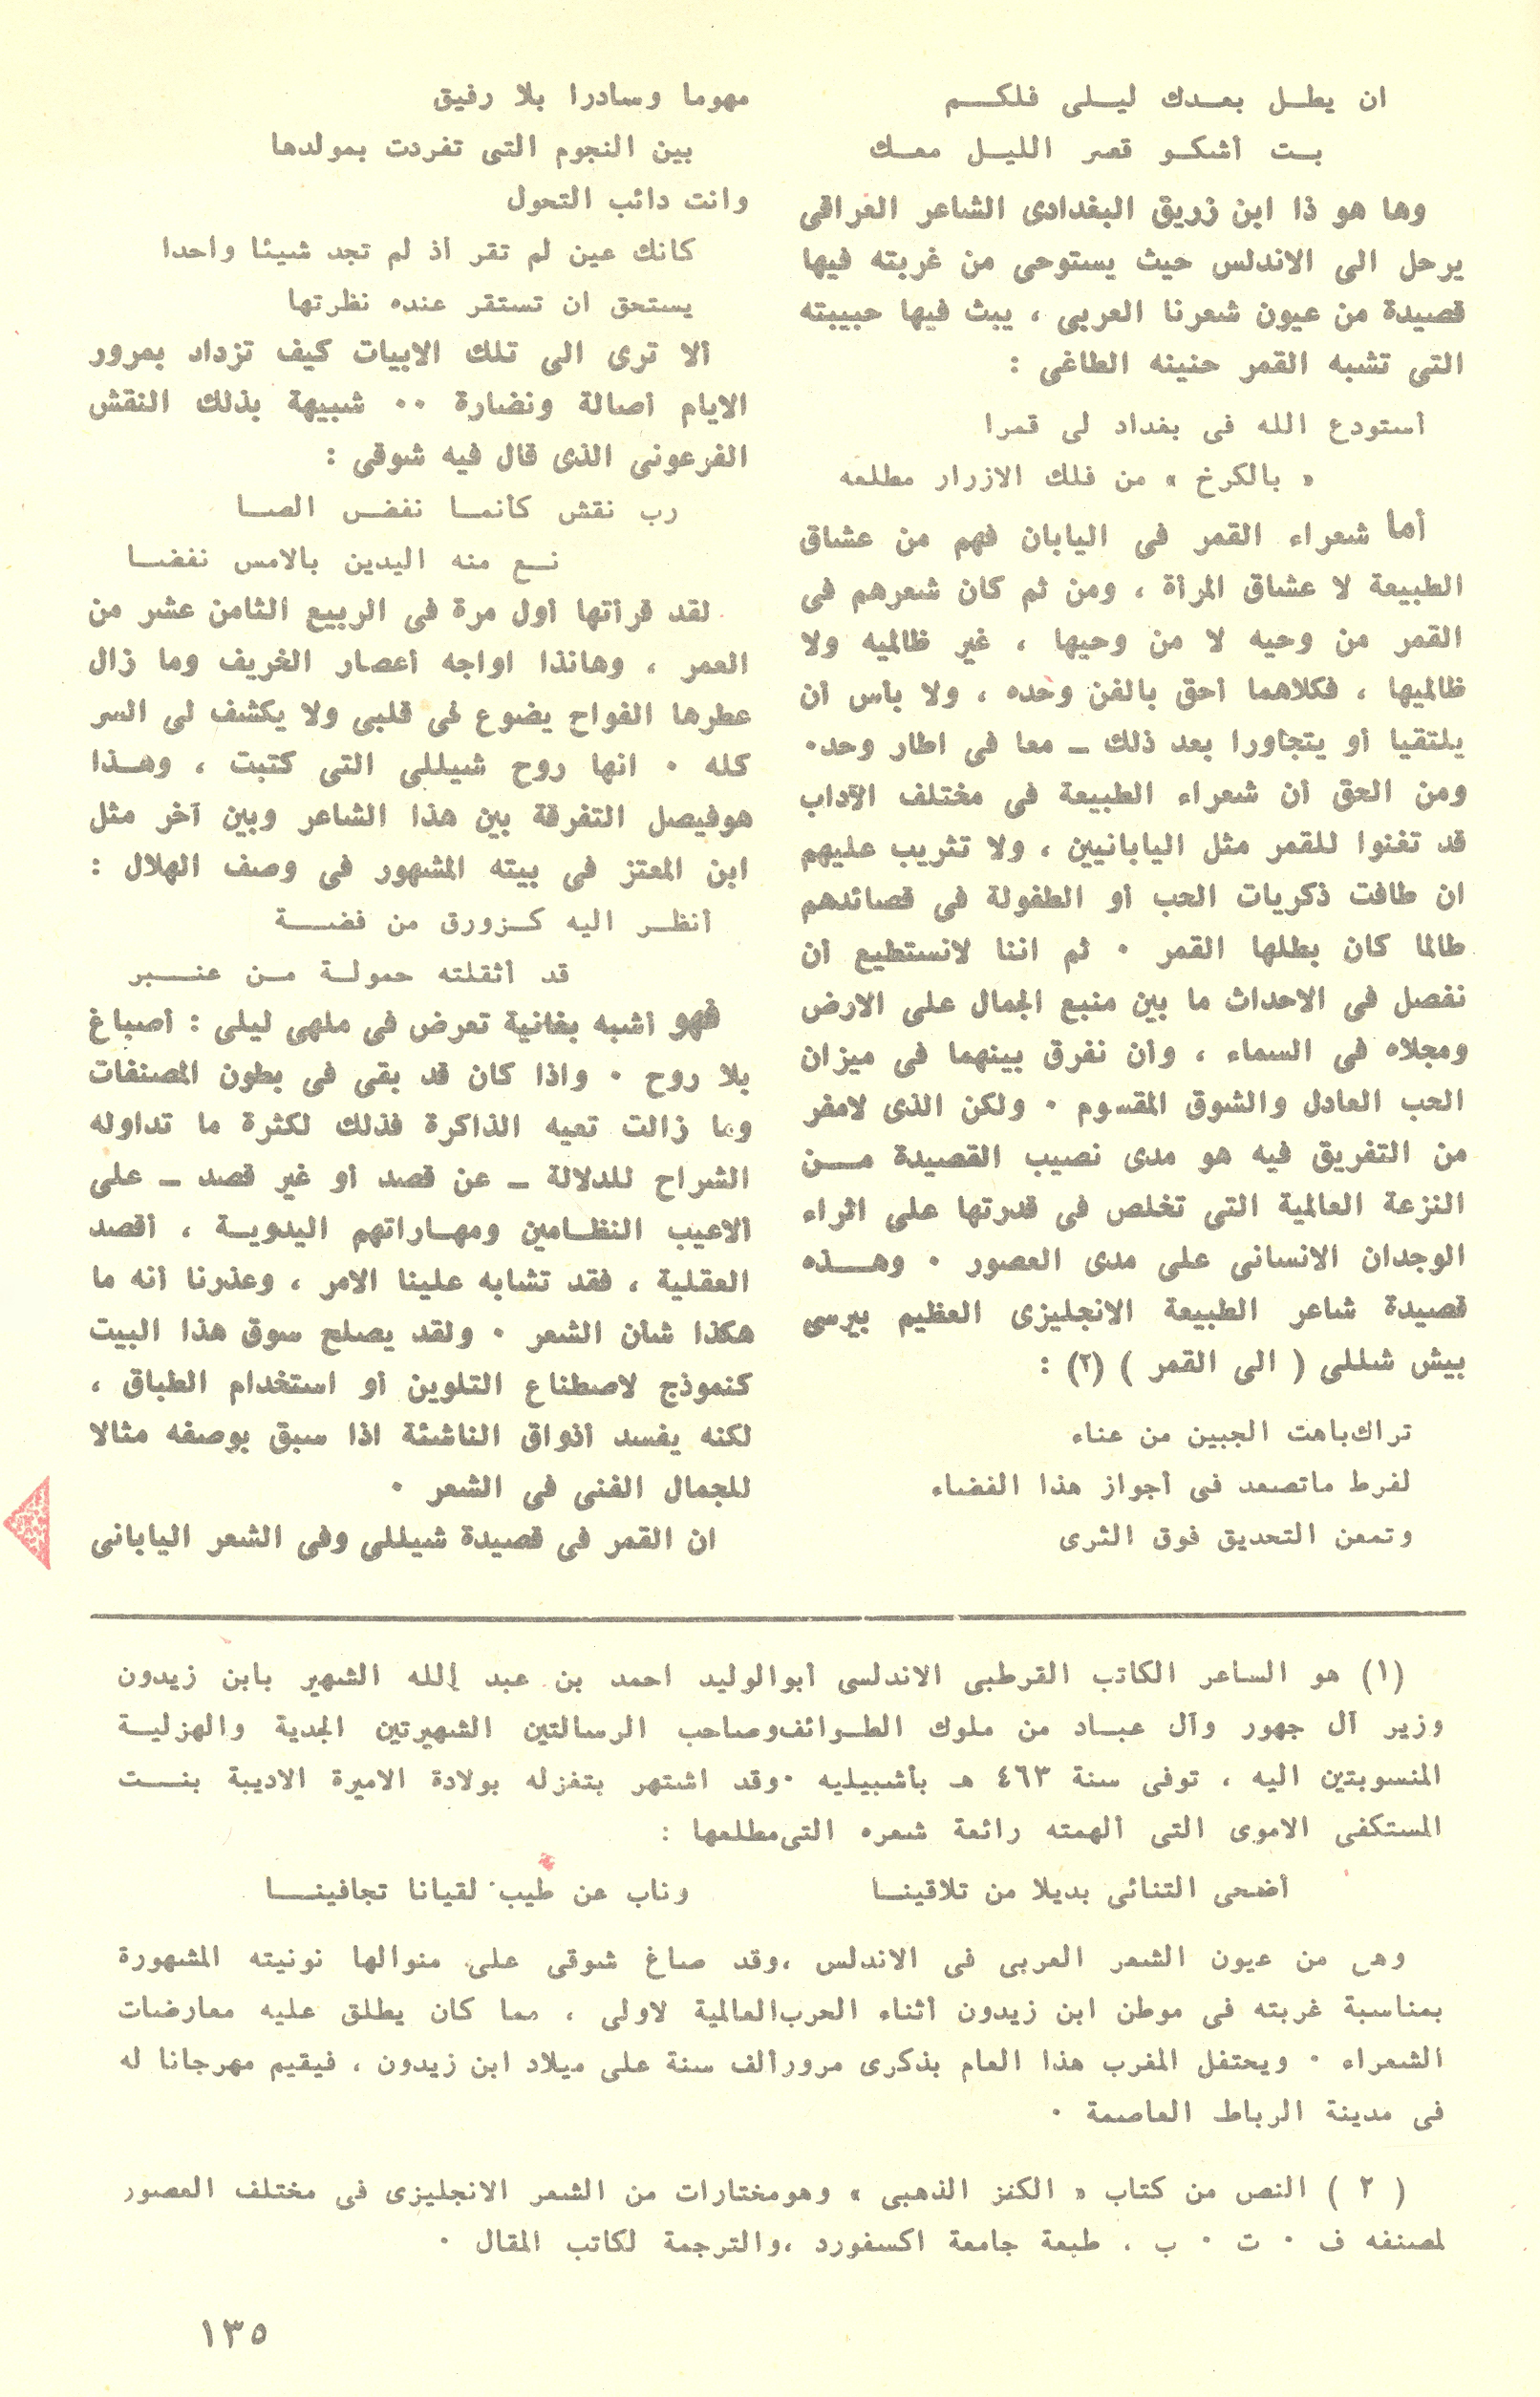 ان يطل بعدك ليلى فلكم
بت أشكو قصر الليل معك
وها هو ذا ابن زريق البغدادى الشاعر العراقى
يرحل الى الاندلس حيث يستوحى من غربته فيها
قصيدة من عيون شعرنا العربى ، يبث فيها حبيبته
التى تشبه القمر حنينه الطاغى :
أستودع الله فى بغداد لى قمرا
« بالكرخ » من فلك الازرار مطلعه
أما شعراء القمر فى اليابان فهم من عشاق
الطبيعة لا عشاق المرأة ، ومن ثم كان شعرهم فى
القمر من وحيه لا من وحيها ، غير ظالميه ولا
ظالميها ، فكلاهما أحق بالفن وحده ، ولا بأس أن
يلتقيا أو يتجاورا بعد ذلك ــ معا فى اطار وحد٠
ومن الحق أن شعراء الطبيعة فى مختلف الآداب
قد تغنوا للقمر مثل اليابانيين ، ولا تثريب عليهم
ان طافت ذكريات الحب أو الطفولة فى قصائدهم
طالما كان بطلها القمر ٠ ثم اننا لانستطيع أن
نفصل فى الاحداث ما بين منبع الجمال على الارض
ومجلاه فى السماء ، وأن نفرق بينهما فى ميزان
الحب العادل والشوق المقسوم ٠ ولكن الذى لامفر
من التفريق فيه هو مدى نصيب القصيدة مــن
النزعة العالمية التى تخلص فى قدرتها على اثراء
الوجدان الانسانى على مدى العصور ٠ وهــذه
قصيدة شاعر الطبيعة الانجليزى العظيم بيرسى
بيش شللى ( الى القمر ) (٢) :
تراك باهت الجبين من عناء
لفرط ماتصعد فى أجواز هذا الفضاء
وتمعن التحديق فوق الثرى
مهوما وسادرا بلا رفيق
بين النجوم التى تفردت بمولدها
وانت دائب التحول
كانك عين لم تقر أذ لم تجد شيئا واحدا
يستحق ان تستقر عنده نظرتها
ألا ترى الى تلك الابيات كيف تزداد بمرور
الايام أصالة ونضارة ٠٠ شبيهة بذلك النقش
الفرعونى الذى قال فيه شوقى :
رب نقش كأنمـا نفض الصـا
نـع منه اليدين بالامس نفضـا
لقد قرأتها أول مرة فى الربيع الثامن عشر من
العمر ، وهانذا اواجه أعصار الخريف وما زال
عطرها الفواح يضوع فى قلبى ولا يكشف لى السر
كله ٠ انها روح شيللى التى كتبت ، وهـذا
هوفيصل التفرقة بين هذا الشاعر وبين آخر مثل
ابن المعتز فى بيته المشهور فى وصف الهلال :
أنظـر اليه كـزورق من فضــة
قد أثقلته حمولـة مـن عنــبر
فهو أشبه بغانية تعرض فى ملهى ليلى : أصباغ
بلا روح ٠ واذا كان قد بقى فى بطون المصنفات
وما زالت تعيه الذاكرة فذلك لكثرة ما تداوله
الشراح للدلالة ــ عن قصد أو غير قصد ــ على
ألاعيب النظـامين ومهـاراتهم اليدويـة ، أقصد
العقلية ، فقد تشابه علينا الامر ، وعذرنا أنه ما
هكذا شأن الشعر ٠ ولقد يصلح سوق هذا البيت
كنموذج لاصطناع التلوين أو استخدام الطباق ،
لكنه يفسد أذواق الناشئة اذا سبق بوصفه مثالا
للجمال الفنى فى الشعر ٠
ان القمر فى قصيدة شيللى وفى الشعر اليابانى
(١) هو الساعر الكاتب القرطبى الاندلسى أبوالوليد احمد بن عبد الله الشهير بابن زيدون
وزير آل جهور وآل عبـاد من ملوك الطـوائف وصاحب الرسالتين الشهيرتين الجدية والهزليـة
المنسوبتين اليه ، توفى سنة ٤٦٣ هـ بأشبيليه ٠وقد اشتهر بتغزله بولادة الاميرة الاديبة بنــت
المستكفى الاموى التى ألهمته رائعة شعره التى مطلعها :
أضحى التنائى بديلا من تلاقينـا وناب عن طيب لقيانا تجافينــا
وهى من عيون الشعر العربى فى الاندلس ،وقد صاغ شوقى على منوالها نونيته المشهورة
بمناسبة غربته فى موطن ابن زيدون أثناء الحرب العالمية لاولى ، مما كان يطلق عليه معارضات
الشعراء ٠ ويحتفل المغرب هذا العام بذكرى مرور ألف سنة على ميلاد ابن زيدون ، فيقيم مهرجانا له
فى مدينة الرباط العاصمة ٠
( ٢ ) النص من كتاب « الكنز الذهبى » وهو مختارات من الشعر الانجليزى فى مختلف العصور
لمصنفه ف ٠ ت ٠ ب ، طبعة جامعة اكسفورد ،والترجمة لكاتب المقال ٠
١٣٥